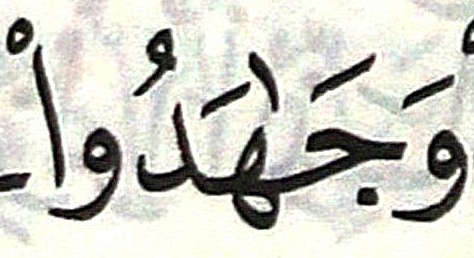 وَجَـٰهَدُوا۟